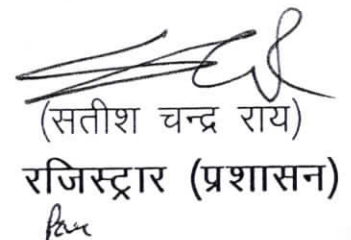 (सतीश चन्द्र राय)
रजिस्ट्रार (प्रशासन)